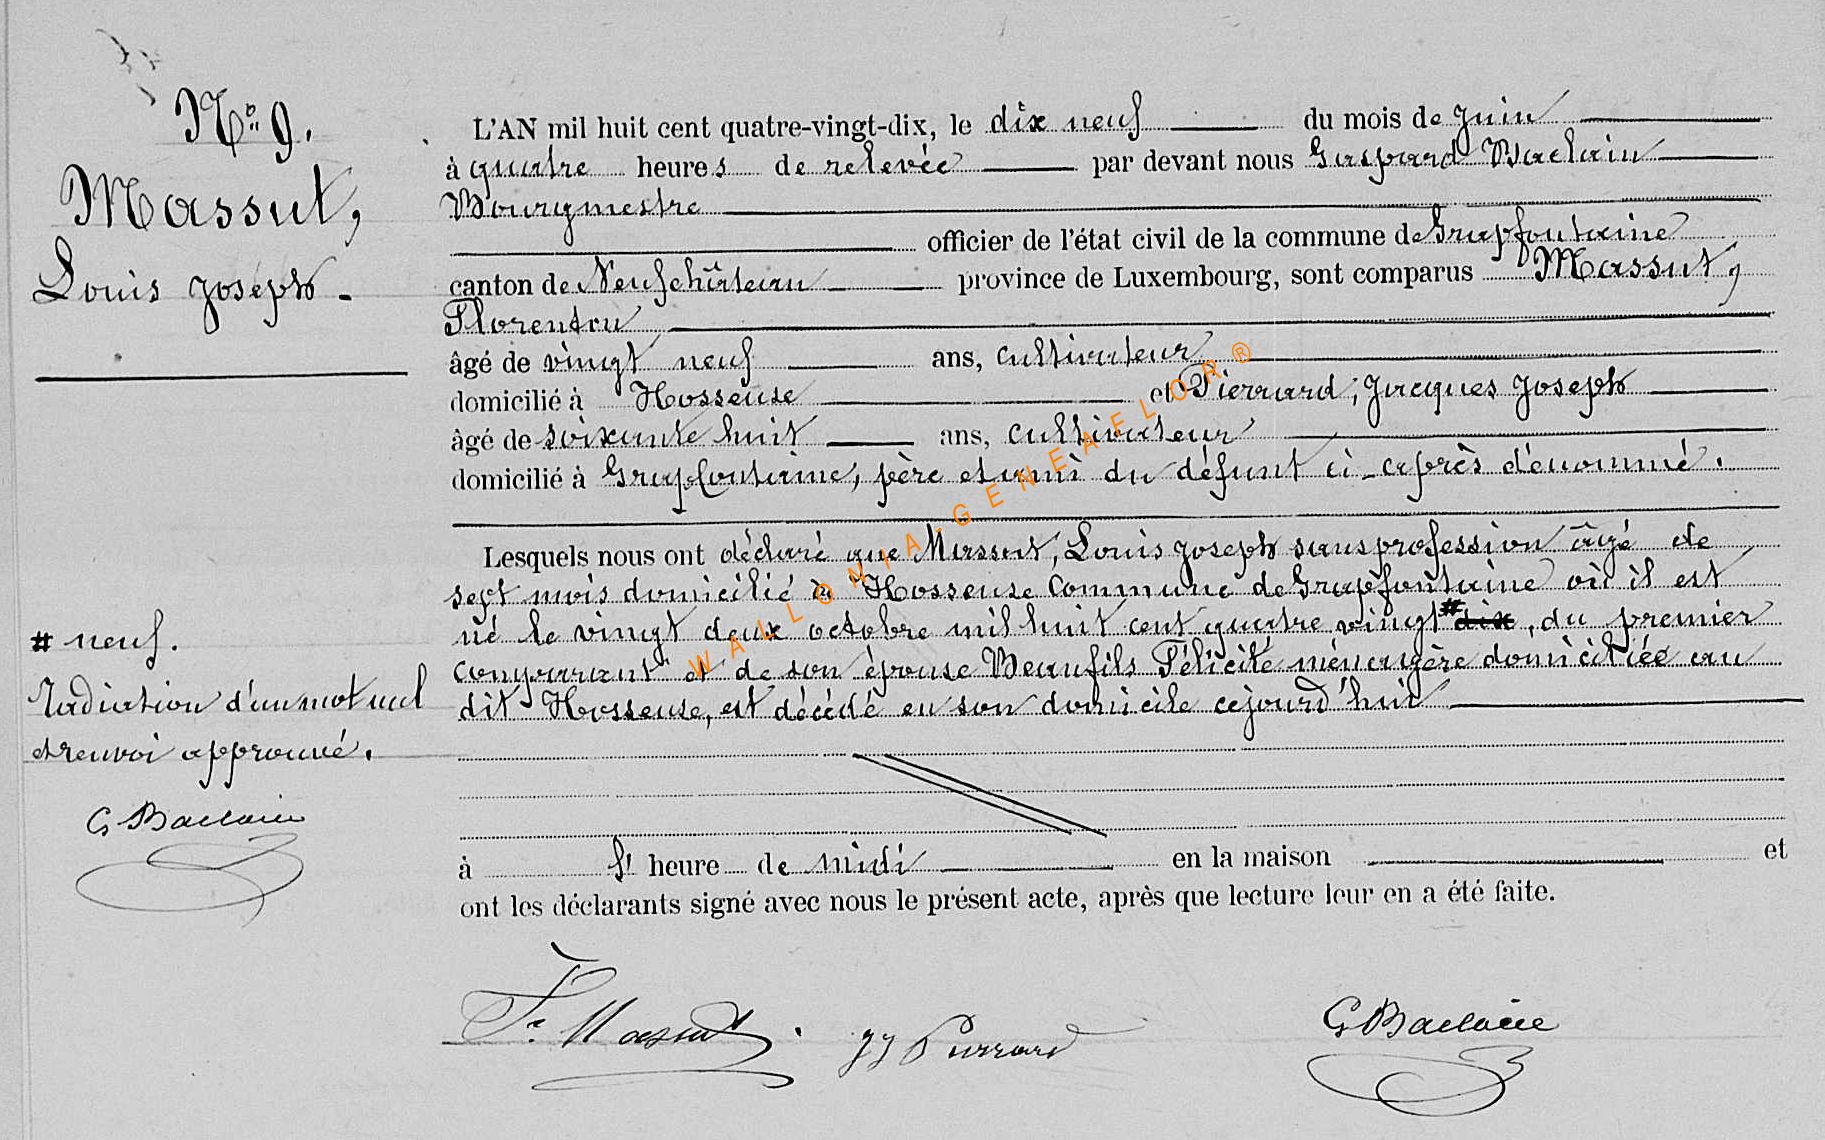 N° 9.
Massut,
Louis Joseph -
L'AN mil huit cent quatre-vingt-dix, le dix neuf du mois de Juin
à quatre heures de relevée par devant nous Gaspard Baclain
Bourgmestre
officier de l'état civil de la commune de Grapfontaine
canton de Neufchâteau province de Luxembourg, sont comparus Massut,
Florentin
âgé de vingt neuf ans, cultivateur
domicilié à Hosseuse et Pierrard, Jacques Joseph
âgé de soixante huit ans, cultivateur
domicilié à Grapfontaine, père et ami du défunt ci-après dénommé.
Lesquels nous ont déclaré que Massut, Louis Joseph sans profession âgé de
sept mois domicilié à Hosseuse Commune de Grapfontaine où il est
né le vingt deux octobre mil huit cent quatre vingt # dix, du premier
comparant et de son épouse Beaufils Félicité ménagère domiciliée au
dit Hosseuse, est décédé en son domicile cejourd'hui
# neuf.
Radiation d'un mot nul
et renvoi approuvé.
G Baclain
à l' heure de midi en la maison et
ont les déclarants signé avec nous le présent acte, après que lecture leur en a été faite.
Massut
JJ Pierrard
G Baclain
WALLONIA-GENEAELOR®